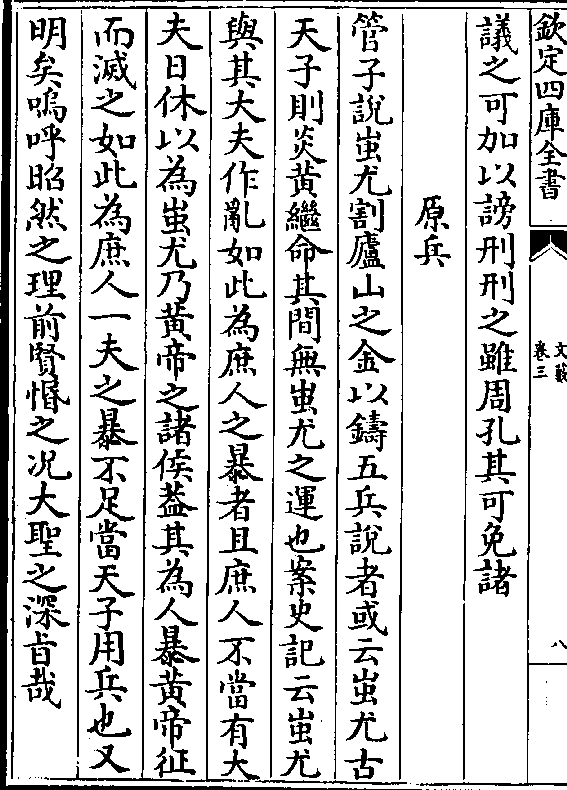 欽定四庫全書
文藪
卷三
八
議之可加以謗刑刑之雖周孔其可免諸
原兵
管子說蚩尤割廬山之金以鑄五兵說者或云蚩尤古
天子則炎黄繼命其間無蚩尤之運也案史記云蚩尤
與其大夫作亂如此為庶人之暴者且庶人不當有大
夫日休以為蚩尤乃黄帝之諸侯葢其為人暴黄帝征
而滅之如此為庶人一夫之暴不足當天子用兵也又
明矣嗚呼昭然之理前賢惛之况大聖之深旨哉